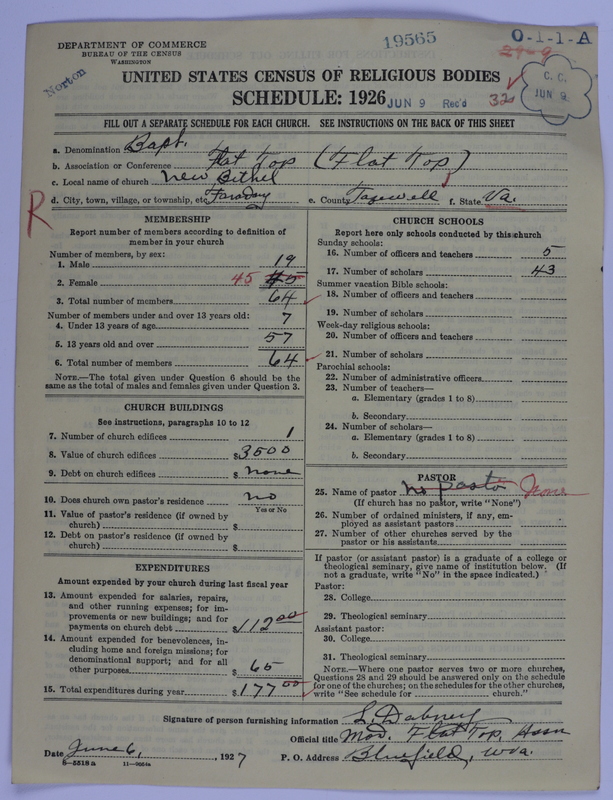 DEPARTMENT OF COMMERCE
BUREAU OF THE CENSUS
WASHINGTON
Norton
19565
O-1-1-A
29-9
UNITED STATES CENSUS OF RELIGIOUS BODIES
SCHEDULE: 1926
JUN 9 Rec'd
320
C. C.
JUN 9
FILL OUT A SEPARATE SCHEDULE FOR EACH CHURCH. SEE INSTRUCTIONS ON THE BACK OF THIS SHEET
a. Denomination Bapt.
b. Association or Conference Flat Top (Flat Top)
c. Local name of church New Bethel
d. City, town, village, or township, etc. Faraday e. County Tazewell f. State Va.
R
MEMBERSHIP
Report number of members according to definition of
member in your church
Number of members, by sex:
1. Male 19
2. Female 45 45
3. Total number of members 64
Number of members under and over 13 years old:
4. Under 13 years of age 7
5. 13 years old and over 57
6. Total number of members 64
NOTE.—The total given under Question 6 should be the
same as the total of males and females given under Question 3.
CHURCH BUILDINGS
See instructions, paragraphs 10 to 12
7. Number of church edifices 1
8. Value of church edifices $3500
9. Debt on church edifices $ none
10. Does church own pastor's residence no
Yes or No
11. Value of pastor's residence (if owned by
church) $
12. Debt on pastor's residence (if owned by
church) $
EXPENDITURES
Amount expended by your church during last fiscal year
13. Amount expended for salaries, repairs,
and other running expenses; for im-
provements or new buildings; and for
payments on church debt $112 00
14. Amount expended for benevolences, in-
cluding home and foreign missions; for
denominational support; and for all
other purposes $ 65
15. Total expenditures during year $177 00
CHURCH SCHOOLS
Report here only schools conducted by this church
Sunday schools:
16. Number of officers and teachers 5
17. Number of scholars 43
Summer vacation Bible schools:
18. Number of officers and teachers
19. Number of scholars
Week-day religious schools:
20. Number of officers and teachers
21. Number of scholars
Parochial schools:
22. Number of administrative officers
23. Number of teachers—
a. Elementary (grades 1 to 8)
b. Secondary
24. Number of scholars—
a. Elementary (grades 1 to 8)
b. Secondary
PASTOR
25. Name of pastor no pastor None
(If church has no pastor, write "None")
26. Number of ordained ministers, if any, em-
ployed as assistant pastors
27. Number of other churches served by the
pastor or his assistants
If pastor (or assistant pastor) is a graduate of a college or
theological seminary, give name of institution below. (If
not a graduate, write "No" in the space indicated.)
Pastor:
28. College
29. Theological seminary
Assistant pastor:
30. College
31. Theological seminary
NOTE.—Where one pastor serves two or more churches,
Questions 28 and 29 should be answered only on the schedule
for one of the churches; on the schedules for the other churches,
write "See schedule for church."
Signature of person furnishing information L. Dabney
Official title Mod. Flat Top, Assn
Date June 6, 1927 P. O. Address Bluefield, Wva.
8-5518a 11-9054a